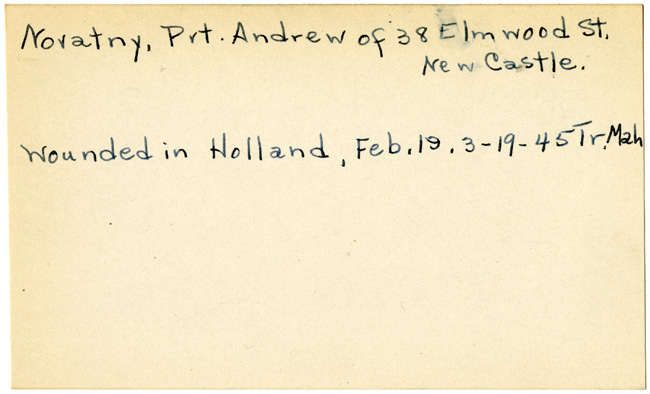 Novatny, Prt. Andrew of 38 Elmwood St.
New Castle.
Wounded in Holland, Feb. 19. 3-19-45 Tr. Mah